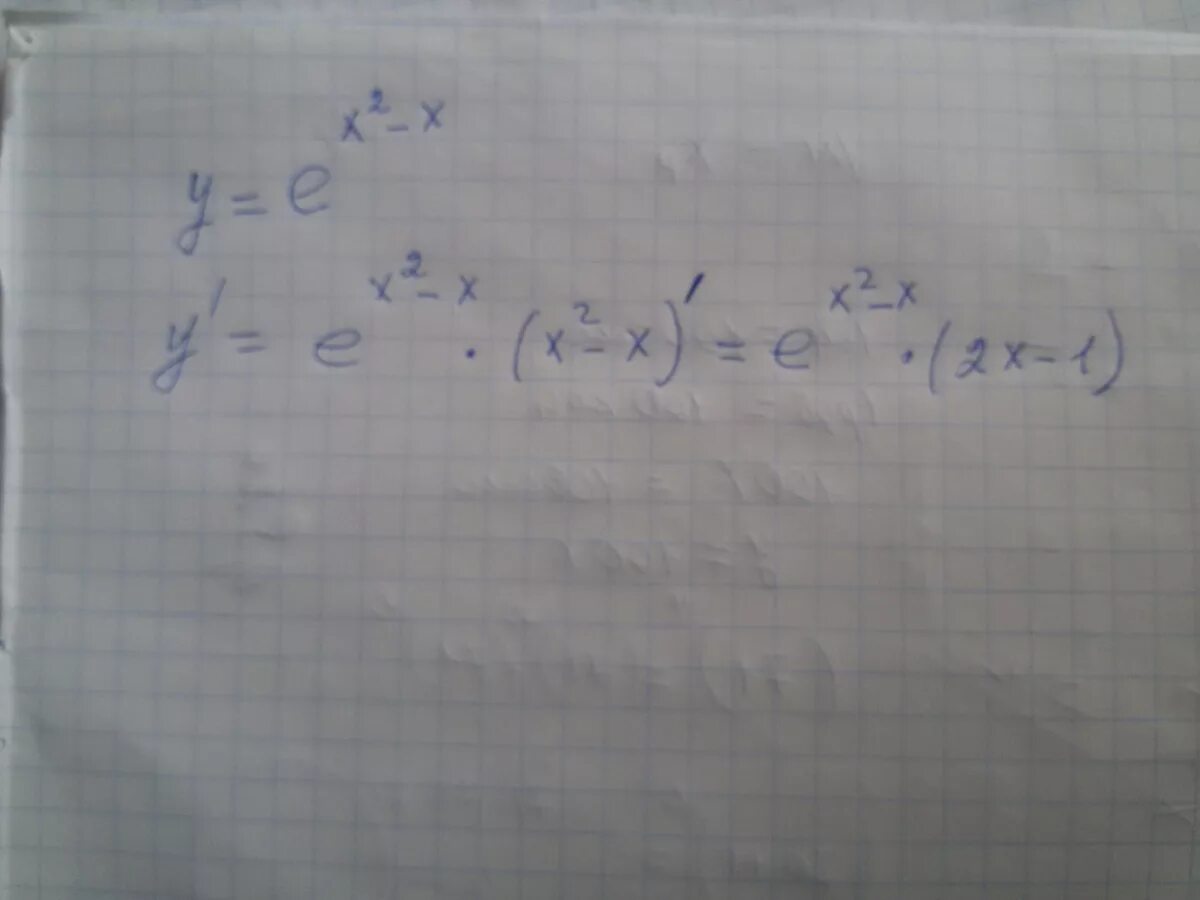 y = e^{x^2 - x}
y' = e^{x^2 - x} · (x^2 - x)' = e^{x^2 - x} · (2x - 1)